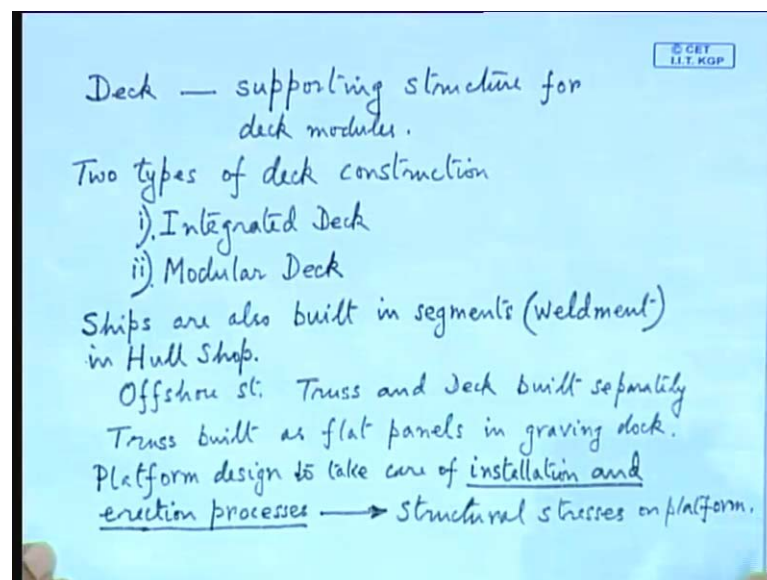 © CET
I.I.T. KGP
Deck — supporting structure for
deck modules.
Two types of deck construction
i). Integrated Deck
ii). Modular Deck
Ships are also built in segments (weldment)
in Hull Shop.
Offshore st. Truss and Deck built separately
Truss built as flat panels in graving dock.
Platform design to take care of installation and
erection processes → Structural stresses on platform.